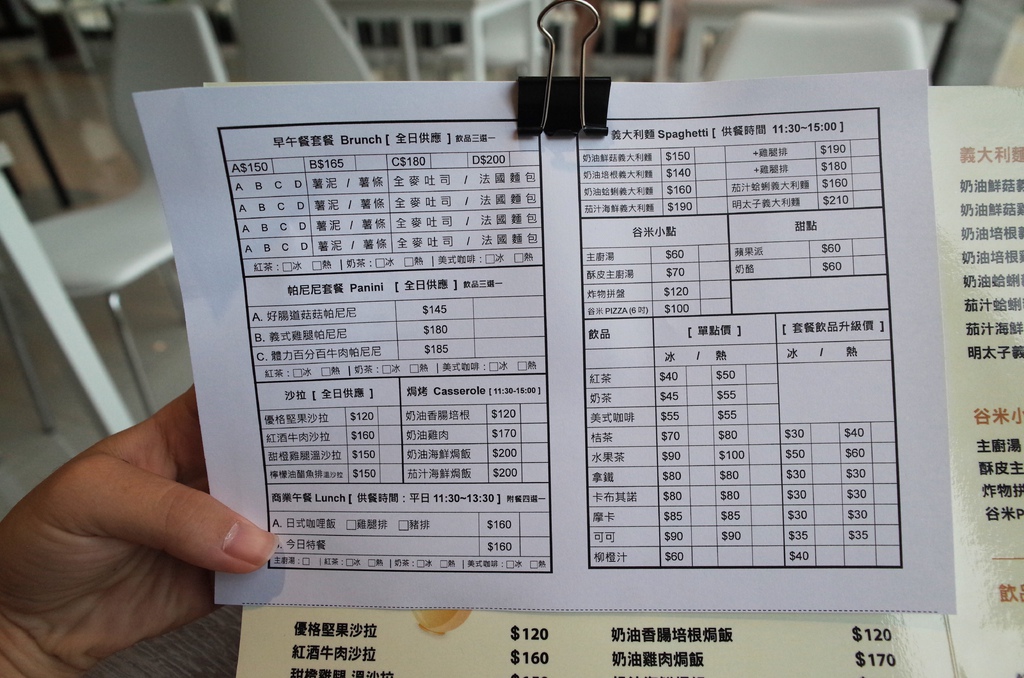 早午餐套餐 Brunch [ 全日供應 ] 飲品三選一
A$150 B$165 C$180 D$200
A B C D 薯泥 / 薯條 全麥吐司 / 法國麵包
A B C D 薯泥 / 薯條 全麥吐司 / 法國麵包
A B C D 薯泥 / 薯條 全麥吐司 / 法國麵包
A B C D 薯泥 / 薯條 全麥吐司 / 法國麵包
紅茶:□冰 □熱 | 奶茶:□冰 □熱 | 美式咖啡:□冰 □熱
帕尼尼套餐 Panini [ 全日供應 ] 飲品三選一
A. 好腸道菇菇帕尼尼 $145
B. 義式雞腿帕尼尼 $180
C. 體力百分百牛肉帕尼尼 $185
紅茶:□冰 □熱 | 奶茶:□冰 □熱 | 美式咖啡:□冰 □熱
沙拉 [ 全日供應 ]
優格堅果沙拉 $120
紅酒牛肉沙拉 $160
甜橙雞腿溫沙拉 $150
檸檬油醋魚排溫沙拉 $150
焗烤 Casserole [ 11:30-15:00 ]
奶油香腸培根 $120
奶油雞肉 $170
奶油海鮮焗飯 $200
茄汁海鮮焗飯 $200
商業午餐 Lunch [ 供餐時間:平日 11:30~13:30 ] 附餐四選一
A. 日式咖哩飯 □雞腿排 □豬排 $160
今日特餐 $160
主廚湯:□ | 紅茶:□冰 □熱 | 奶茶:□冰 □熱 | 美式咖啡:□冰 □熱
義大利麵 Spaghetti [ 供餐時間 11:30~15:00 ]
奶油鮮菇義大利麵 $150 +雞腿排 $190
奶油培根義大利麵 $140 +雞腿排 $180
奶油蛤蜊義大利麵 $160 茄汁蛤蜊義大利麵 $160
茄汁海鮮義大利麵 $190 明太子義大利麵 $210
谷米小點
主廚湯 $60
酥皮主廚湯 $70
炸物拼盤 $120
谷米 PIZZA (6 吋) $100
甜點
蘋果派 $60
奶酪 $60
飲品 [ 單點價 ] [ 套餐飲品升級價 ]
冰 / 熱 冰 / 熱
紅茶 $40 $50
奶茶 $45 $55
美式咖啡 $55 $55
桔茶 $70 $80 $30 $40
水果茶 $90 $100 $50 $60
拿鐵 $80 $80 $30 $30
卡布其諾 $80 $80 $30 $30
摩卡 $85 $85 $30 $30
可可 $90 $90 $35 $35
柳橙汁 $60 $40
優格堅果沙拉 $120 奶油香腸培根焗飯 $120
紅酒牛肉沙拉 $160 奶油雞肉焗飯 $170
義大利
奶油鮮菇義
奶油鮮菇
奶油培根
奶油培根
奶油蛤蜊
茄汁蛤蜊
茄汁海鮮
明太子義
谷米小
主廚湯
酥皮主
炸物拼
谷米P
飲品